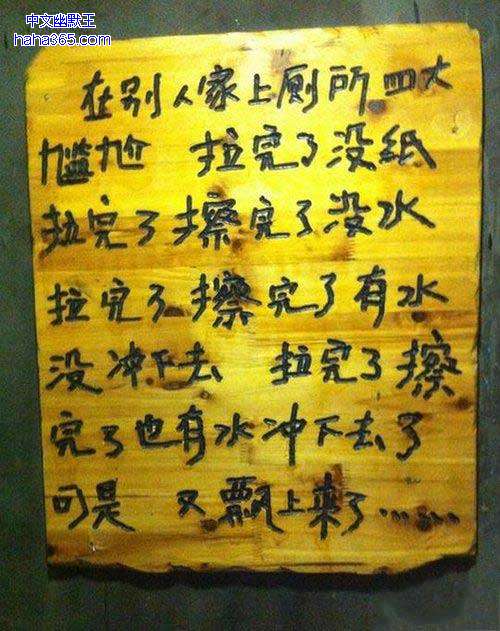 中文幽默王
haha365.com
在别人家上厕所四大
尴尬 拉完了没纸
拉完了擦完了没水
拉完了擦完了有水
没冲下去 拉完了擦
完了也有水冲下去了
可是 又飘上来了……